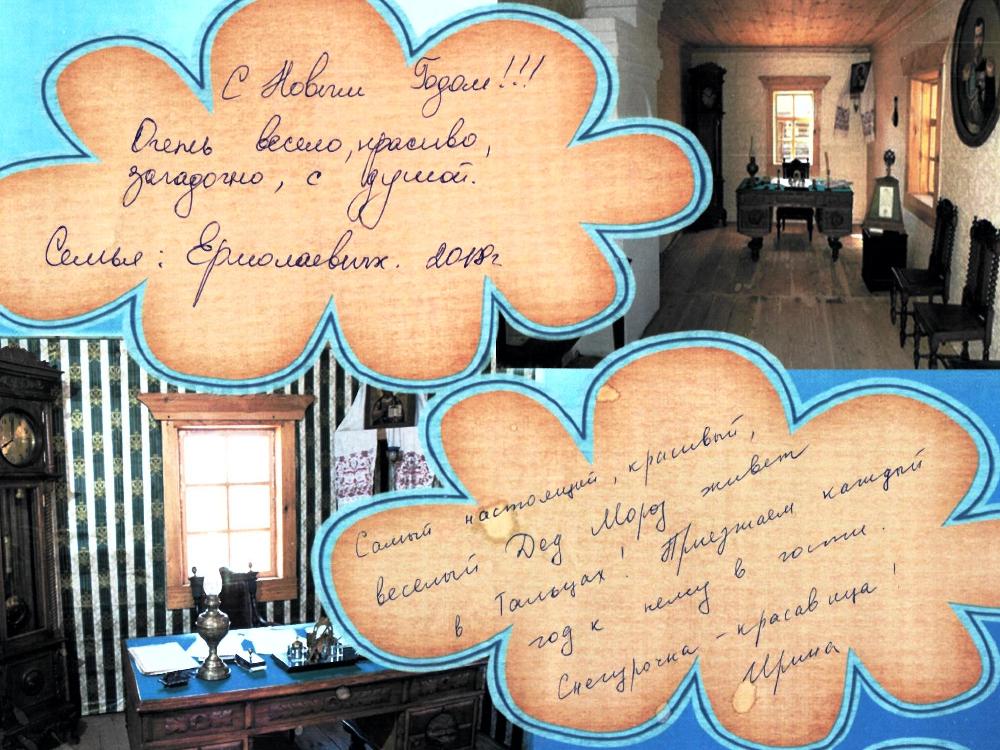 С Новым Годом!!!
Очень весело, красиво,
загадочно, с душой.
Семья: Ермолаевых. 2018г
Самый настоящий, красивый,
веселый Дед Мороз живет
в Тальцах! Приезжаем каждый
год к нему в гости.
Снегурочка-красавица!
Ирина